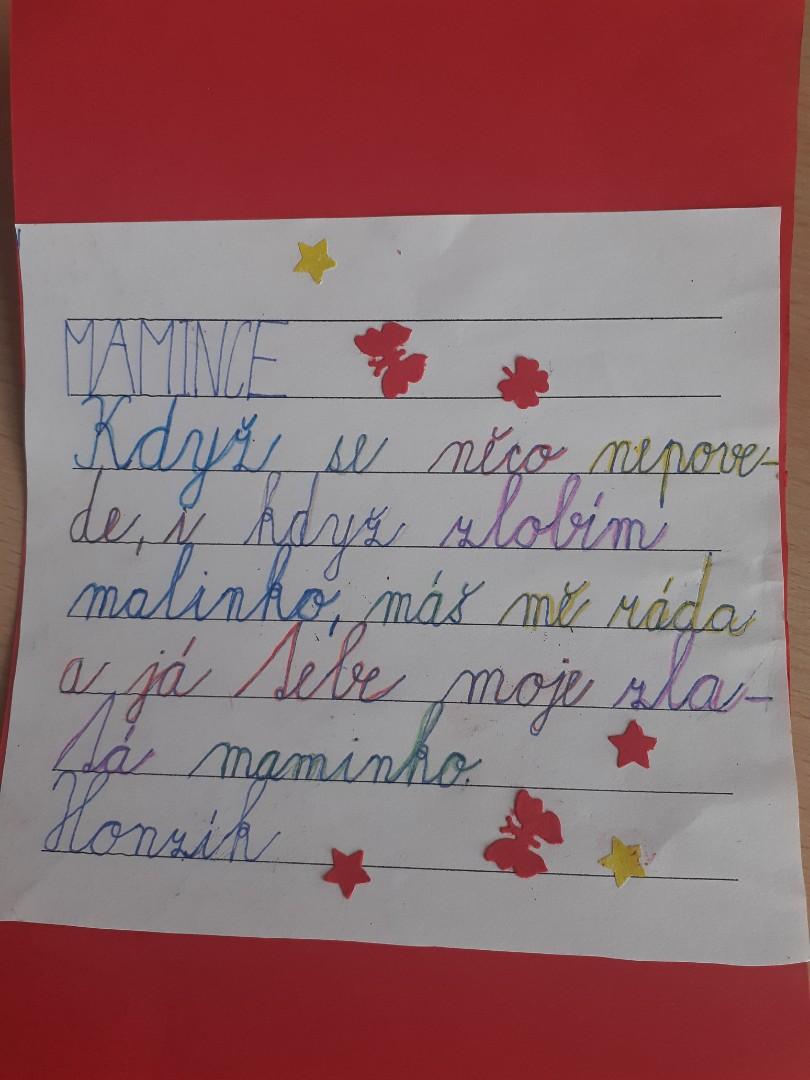 MAMINCE
Když se něco nepove-
de, i když zlobím
malinko, máš mě ráda
a já tebe moje zla-
tá maminko.
Honzík